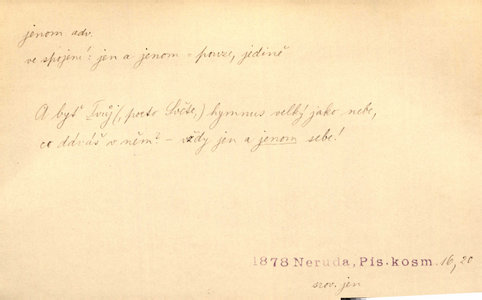 jenom adv.
ve spojení: jen a jenom - pouze, jedině
A byť Tvůj (, poeto Světe,) hymnus velký jako nebe,
co dáváš v něm? - vždy jen a jenom sebe!
1878 Neruda, Pís. kosm. 16, 20
srov. jen